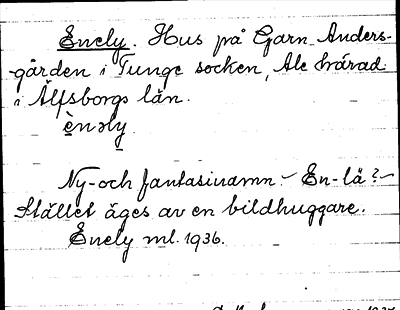 Enely. Hus på Garn Anders-
gården i Tunge socken, Ale härad
i Älfsborgs län.
ènəly
Ny- och fantasinamn. - En-lä? -
Stället äges av en bildhuggare.
Enely ml. 1936.